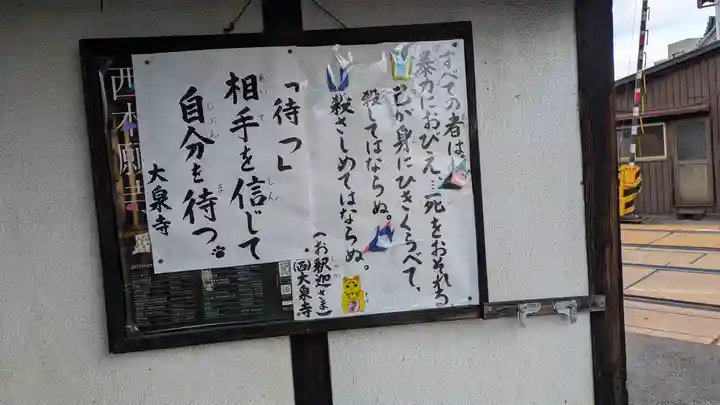 すべての者は。
暴力におびえ…死をおそれる
己が身にひきくらべて、
殺してはならぬ。
殺さしめてはならぬ。
(お釈迦さま)
西大泉寺
「待つ」
相手を信じて
自分を待つ。
大泉寺
西本願寺